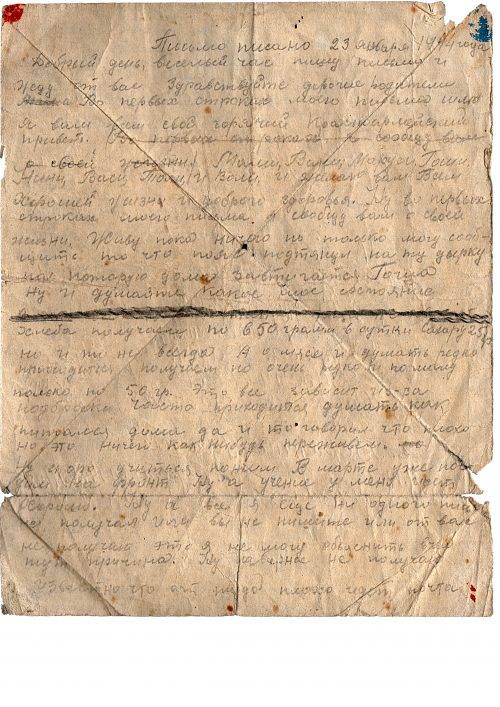 Письмо писано 23 января 194 года
Добрый день, веселый час пишу письмо и
жду от вас Здравствуйте дорогие родители
Во первых строках моего письма шлю
Я вам всем свой горячий Красноармейский
привет. Во первых строках я сообщу вам
о своей Мама, Валя, Маруся, Гоша,
Нина, Вася, Толя, и Воля, и желаю вам Всем
Хорошей жизни и доброго здоровья. Ну во первых
строках моего письма я сообщу вам о своей
жизни. Живу пока ничего но только могу сооб-
щить то что пояс подтянул на ту дырку
на которую дома завтигается Гоша
Ну и думайте какое мое состояние
Хлеба получаем по 650 грамм в сутки Сахару 25 гр
но и то не всегда. А о мясе и думать редко
приходится получаем но очень редко и по малу
только по 50 гр. Это все зависит из-за
часто приходится думать как
питался дома да и то говорил что плохо
но это ничего как нибудь переживем.
скоро учиться кончим В марте уже
на фронт Ну а ученье у меня идет
Ну а все я еще ни одного
не получал или вы не пишите или от вас
не получаю это я не могу объяснить
тут причина. Ну наверное не получаю
что плохо идет почта